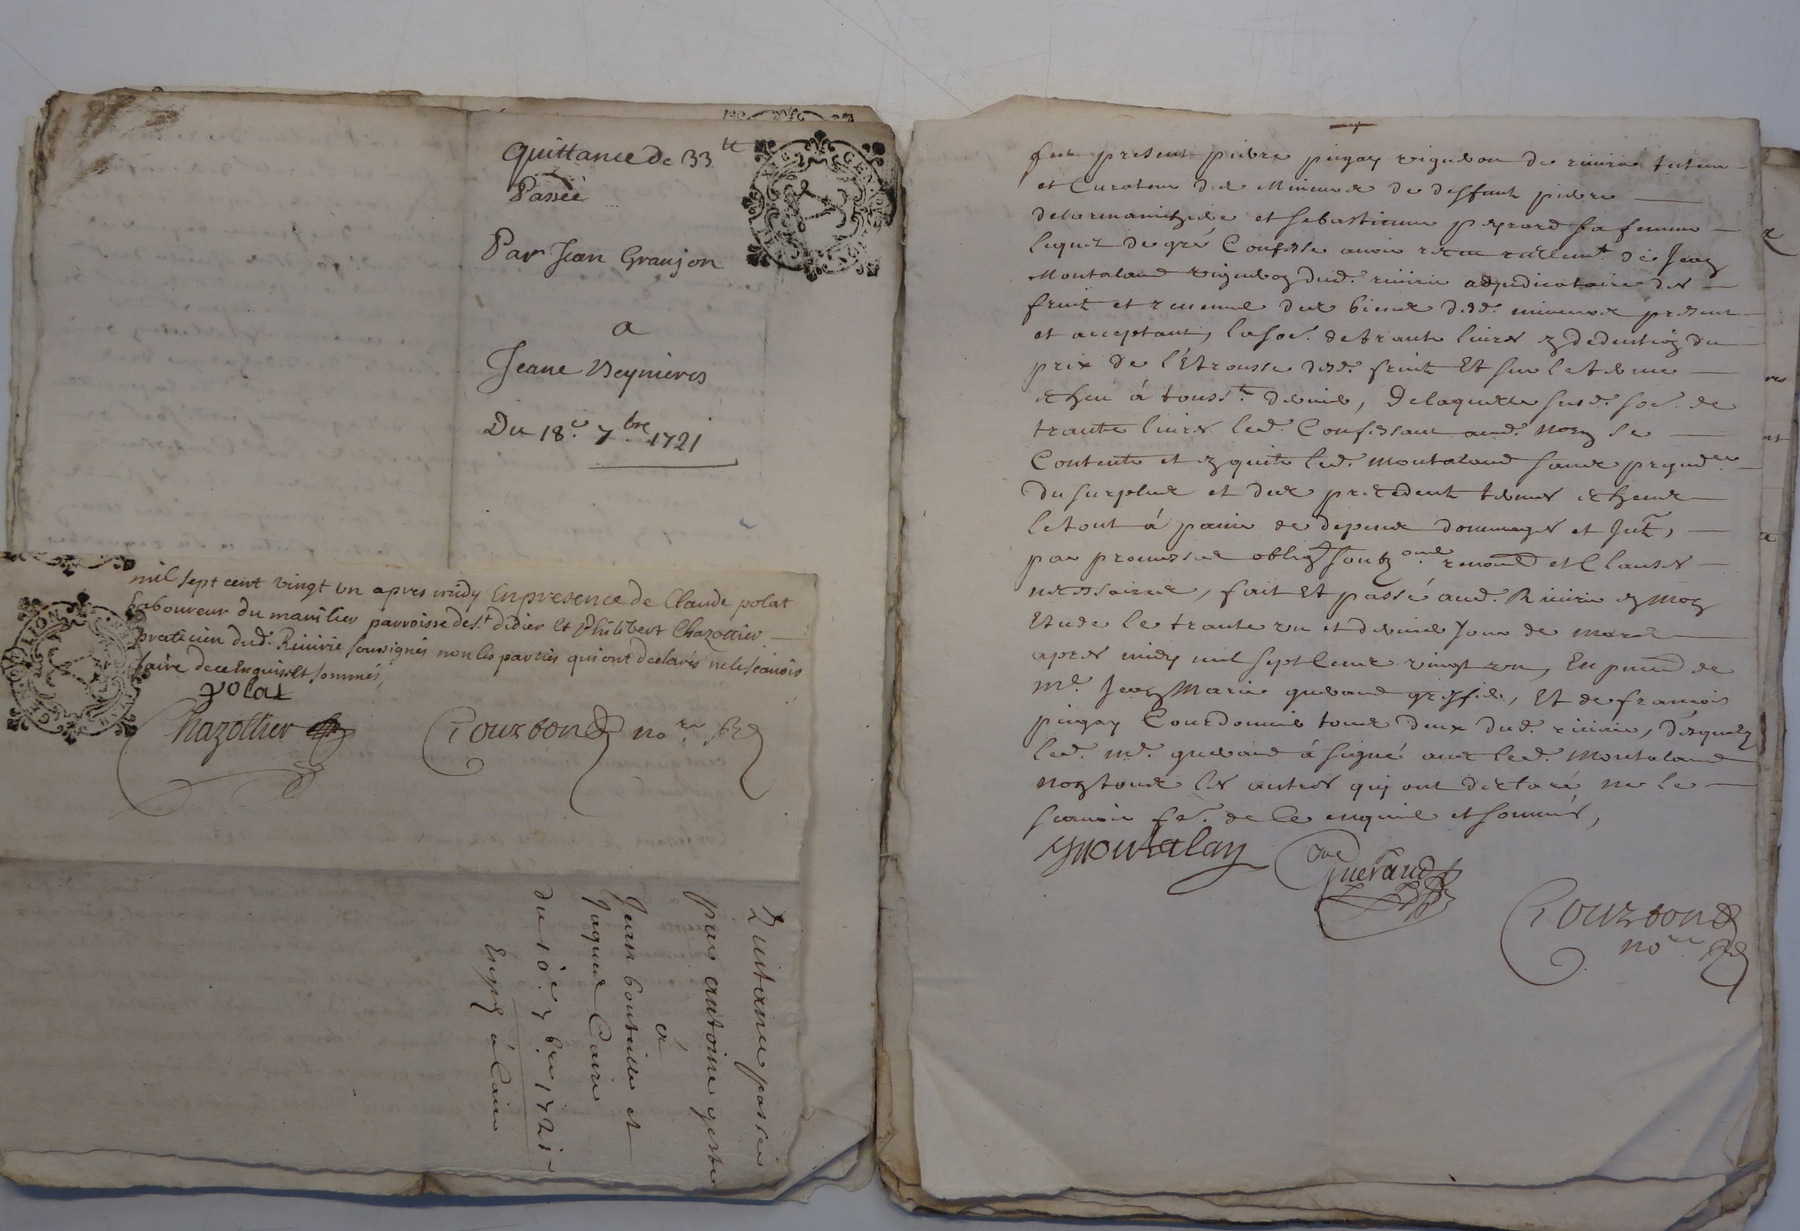 Quittance de 33 tt
Passéé
Par Jean Granjon
a
Jeane Reynieres
Du 18.e 7.bre 1721
mil sept cent vingt un apres midy En presence de Claude polat
Laboureur du mavilier parroisse de s.t didier Et Philibert Chazottier
praticien dud. Riuirie soubsignés non les parties qui ont declarés ne le scauoir
faire de ce Enquis et sommés,
polat
Chazottier
Gourbon no.re
Quitance passée
par antoine
à
Jean bouteille et
Jaques Caire
du 10.e 7bre 1721
fut present pierre pugay vigneron de riuirie tuteur
et Curateur des Mineurs de deffunt pierre
et sebastienne perrard sa femme
lequel de gré Confesse auoir receu reellem.t de Jean
Montaland vigneron dud. riuirie adjudicataire des
fruit et reuenue des biens desd. mineurs present
et acceptant, la so.e de trante liures en deduction du
prix de l'Etrousse desd. fruit Et sur le terme
echeu à touss.t dernier, De laquelle susd. so.e de
trante liures led. Confessant aud. nom se
Contente et en quite led. Montaland sans prejud.ce
du surplus et des precedent termes echeus
le tout à paine de depens dommages et Int.,
par promesses oblig. soubz renond et Clauses
necessaires, fait Et passé aud. Riuirie en mon
Etude le trante un et dernier Jour de mars
apres midy mil sept Cent vingt un, En presence de
m.e Jean Marie gueraud greffier, Et de francois
pugay Courdonnier tous deux dud. riuirie, desquels
led. m.e gueraud à signé auec led. Montaland
non tous les autres qui ont declaré ne le
scauoir fe. de Ce enquis et sommés,
Guéraud
Gourbon
no.re